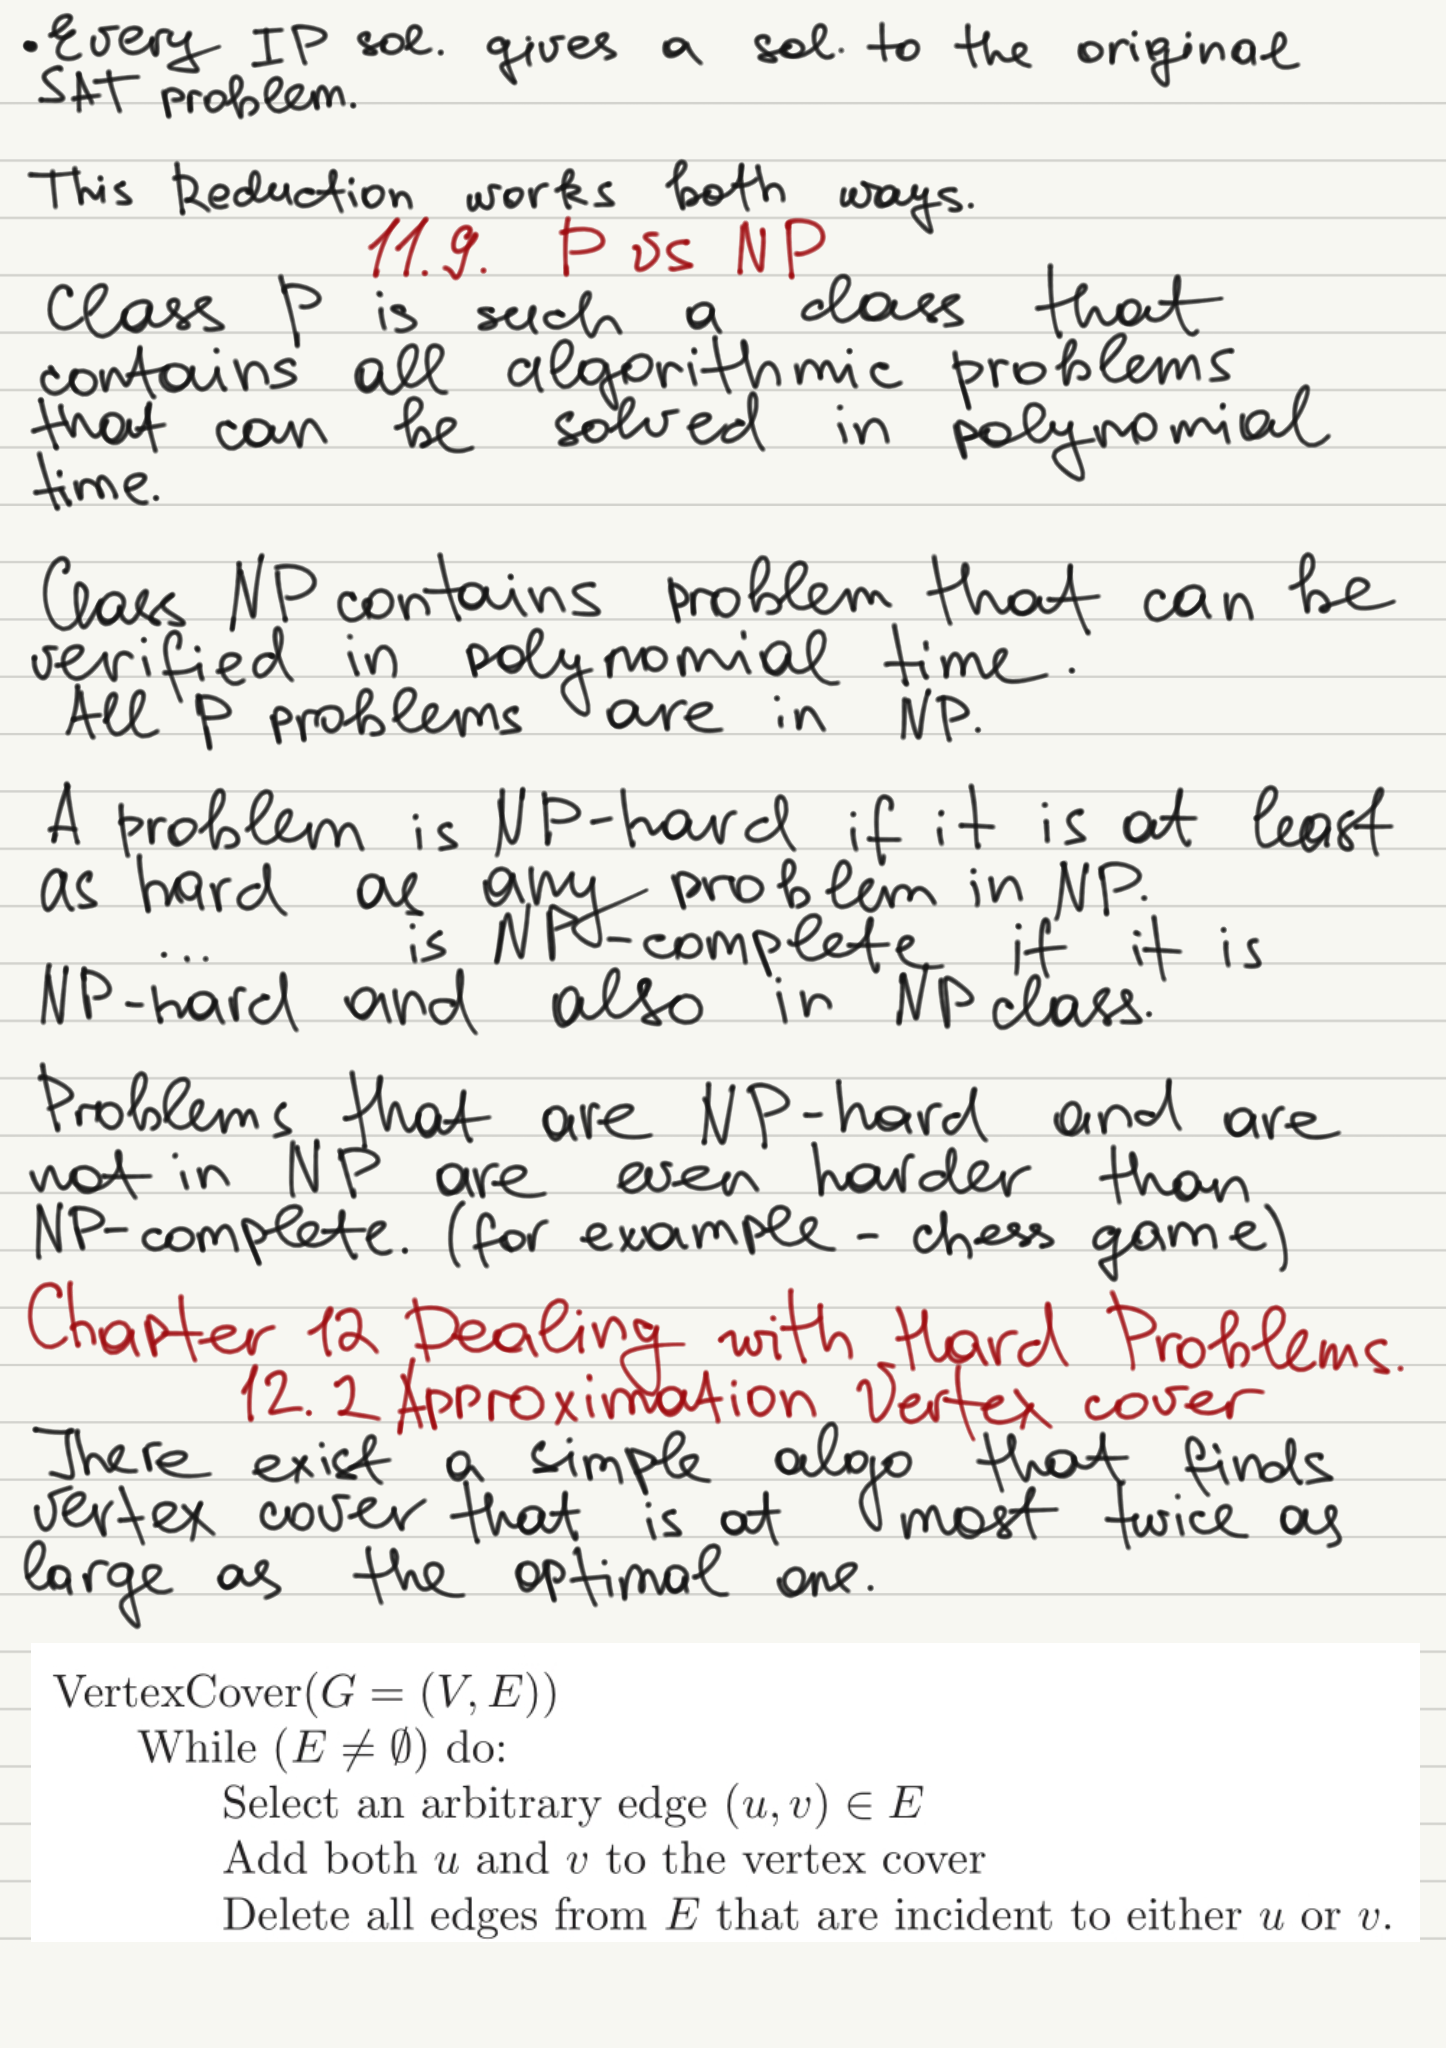 • Every IP sol. gives a sol. to the original
SAT problem.
This Reduction works both ways.
11.9. P vs NP
Class P is such a class that
contains all algorithmic problems
that can be solved in polynomial
time.
Class NP contains problem that can be
verified in polynomial time.
All P problems are in NP.
A problem is NP-hard if it is at least
as hard as any problem in NP.
... is NP-complete if it is
NP-hard and also in NP class.
Problems that are NP-hard and are
not in NP are even harder than
NP-complete. (for example - chess game)
Chapter 12 Dealing with Hard Problems.
12.2 Approximation Vertex cover
There exist a simple algo that finds
vertex cover that is at most twice as
large as the optimal one.
VertexCover(G = (V, E))
While (E ≠ ∅) do:
Select an arbitrary edge (u, v) ∈ E
Add both u and v to the vertex cover
Delete all edges from E that are incident to either u or v.